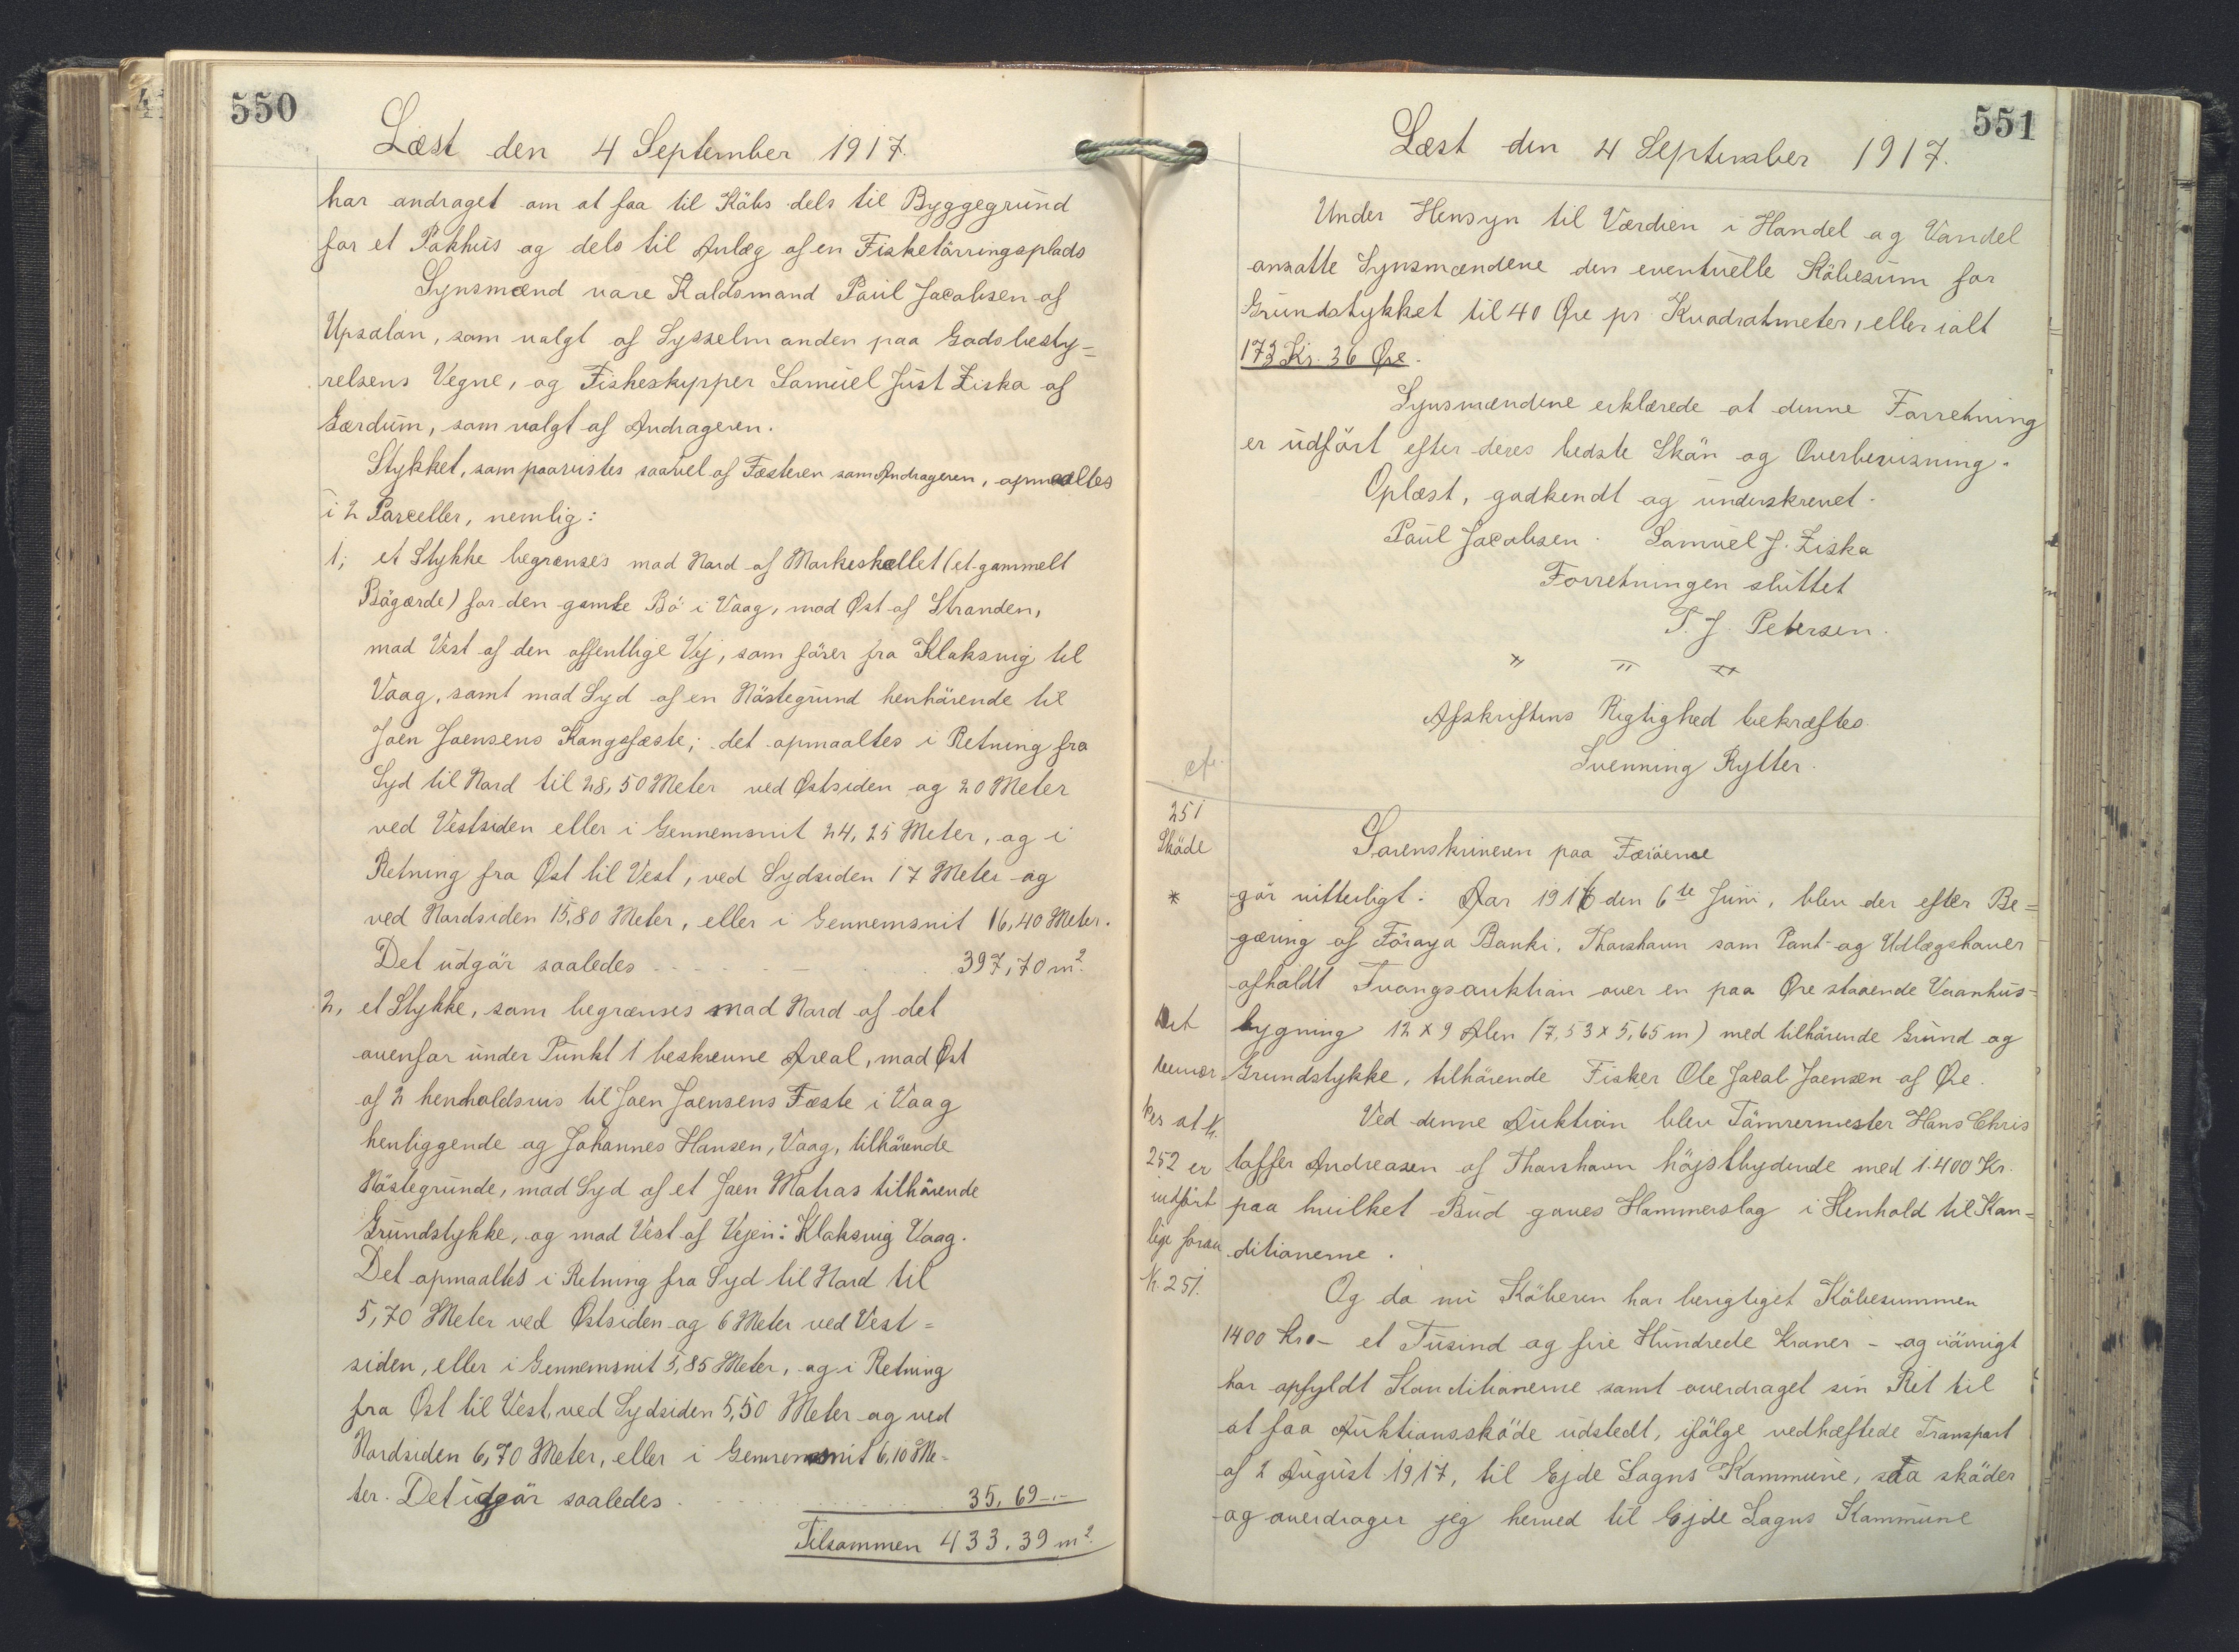 550
Læst den 4 September 1917.
har andraget om at faa til Köbs dels til Byggegrund
for et Pakhus og dels til Anlæg af en Fisketörringsplads
Synsmænd vare Kaldsmand Paul Jacobsen af
Upsalon, som valgt af Sysselmanden paa Godsbesty=
relsens Vegne, og Fiskeskypper Samuel Just Ziska af
Gærdum, som valgt af Andrageren.
Stykket, som paavistes saavel af Fæsteren som Andrageren, opmaaltes
i 2 Parceller, nemlig:
1; et Stykke begrænses mod Nord af Markeskellet (et gammelt
Bögærde) for den gamle Bö i Vaag, mod Øst af Stranden,
mod Vest af den offentlige Vej, som förer fra Klaksvig til
Vaag, samt mod Syd af en Nöstegrund henhörende til
Joen Joensens Kongsfæste; det opmaaltes i Retning fra
Syd til Nord til 28,50 Meter ved Østsiden og 20 Meter
ved Vestsiden eller i Gennemsnit 24,25 Meter, og i
Retning fra Øst til Vest, ved Sydsiden 17 Meter og
ved Nordsiden 15,80 Meter, eller i Gennemsnit 16,40 Meter.
Det udgör saaledes 397,70 m².
2, et Stykke, som begrænses mod Nord af det
ovenfor under Punkt 1 beskrevne Areal, mod Øst
af 2 henholdsvis til Joen Joensens Fæste i Vaag
henliggende og Johannes Hansen, Vaag, tilhörende
Nöstegrunde, mod Syd af et Joen Matras tilhörende
Grundstykke, og mod Vest af Vejen: Klaksvig Vaag.
Det opmaaltes i Retning fra Syd til Nord til
5,70 Meter ved Østsiden og 6 Meter ved Vest=
siden, eller i Gennemsnit 5,85 Meter, og i Retning
fra Øst til Vest, ved Sydsiden 5,50 Meter og ved
Nordsiden 6,70 Meter, eller i Gennemsnit 6,10 Me-
ter. Det udgör saaledes 35,69 -,-
Tilsammen 433,39 m².
551
Læst den 4 September 1917.
Under Hensyn til Værdien i Handel og Vandel
ansatte Synsmændene den eventuelle Köbesum for
Grundstykket til 40 Øre pr Kvadratmeter, eller ialt
173 Kr. 36 Øre.
Synsmændene erklærede at denne Forretning
er udfört efter deres bedste Skön og Overbevisning.
Oplæst, godkendt og underskrevet.
Paul Jacobsen. Samuel J. Ziska
Forretningen sluttet
T. J. Petersen.
Afskriftens Rigtighed bekræftes.
Svenning Rytter.
251
Sköde
*
Det
bemær
kes at N.
252 er
indfört
lige foran
N. 251.
Sorenskriveren paa Færöerne
gör vitterligt: Aar 1916 den 6te Juni, blev der efter Be=
gæring af Föroya Banki, Thorshavn som Pant- og Udlægshaver
afholdt Tvangsauktion over en paa Øre staaende Vaanhus-
bygning 12 x 9 Alen (7,53 x 5,65 m) med tilhörende Grund og
Grundstykke, tilhörende Fisker Ole Jacob Joensen af Øre.
Ved denne Auktion blev Tömrermester Hans Chris
toffer Andreasen af Thorshavn höjstbydende med 1.400 Kr.
paa hvilket Bud gaves Hammerslag i Henhold til Kon=
ditionerne.
Og da nu Köberen har berigtiget Köbesummen
1400 Kro- et Tusind og fire Hundrede Kroner - og iövrigt
har opfyldt Konditionerne samt overdraget sin Ret til
at faa Auktionssköde udstedt, ifölge vedhæftede Transport
af 2 August 1917, til Ejde Sogns Kommune, saa sköder
og overdrager jeg herved til Ejde Sogns Kommune